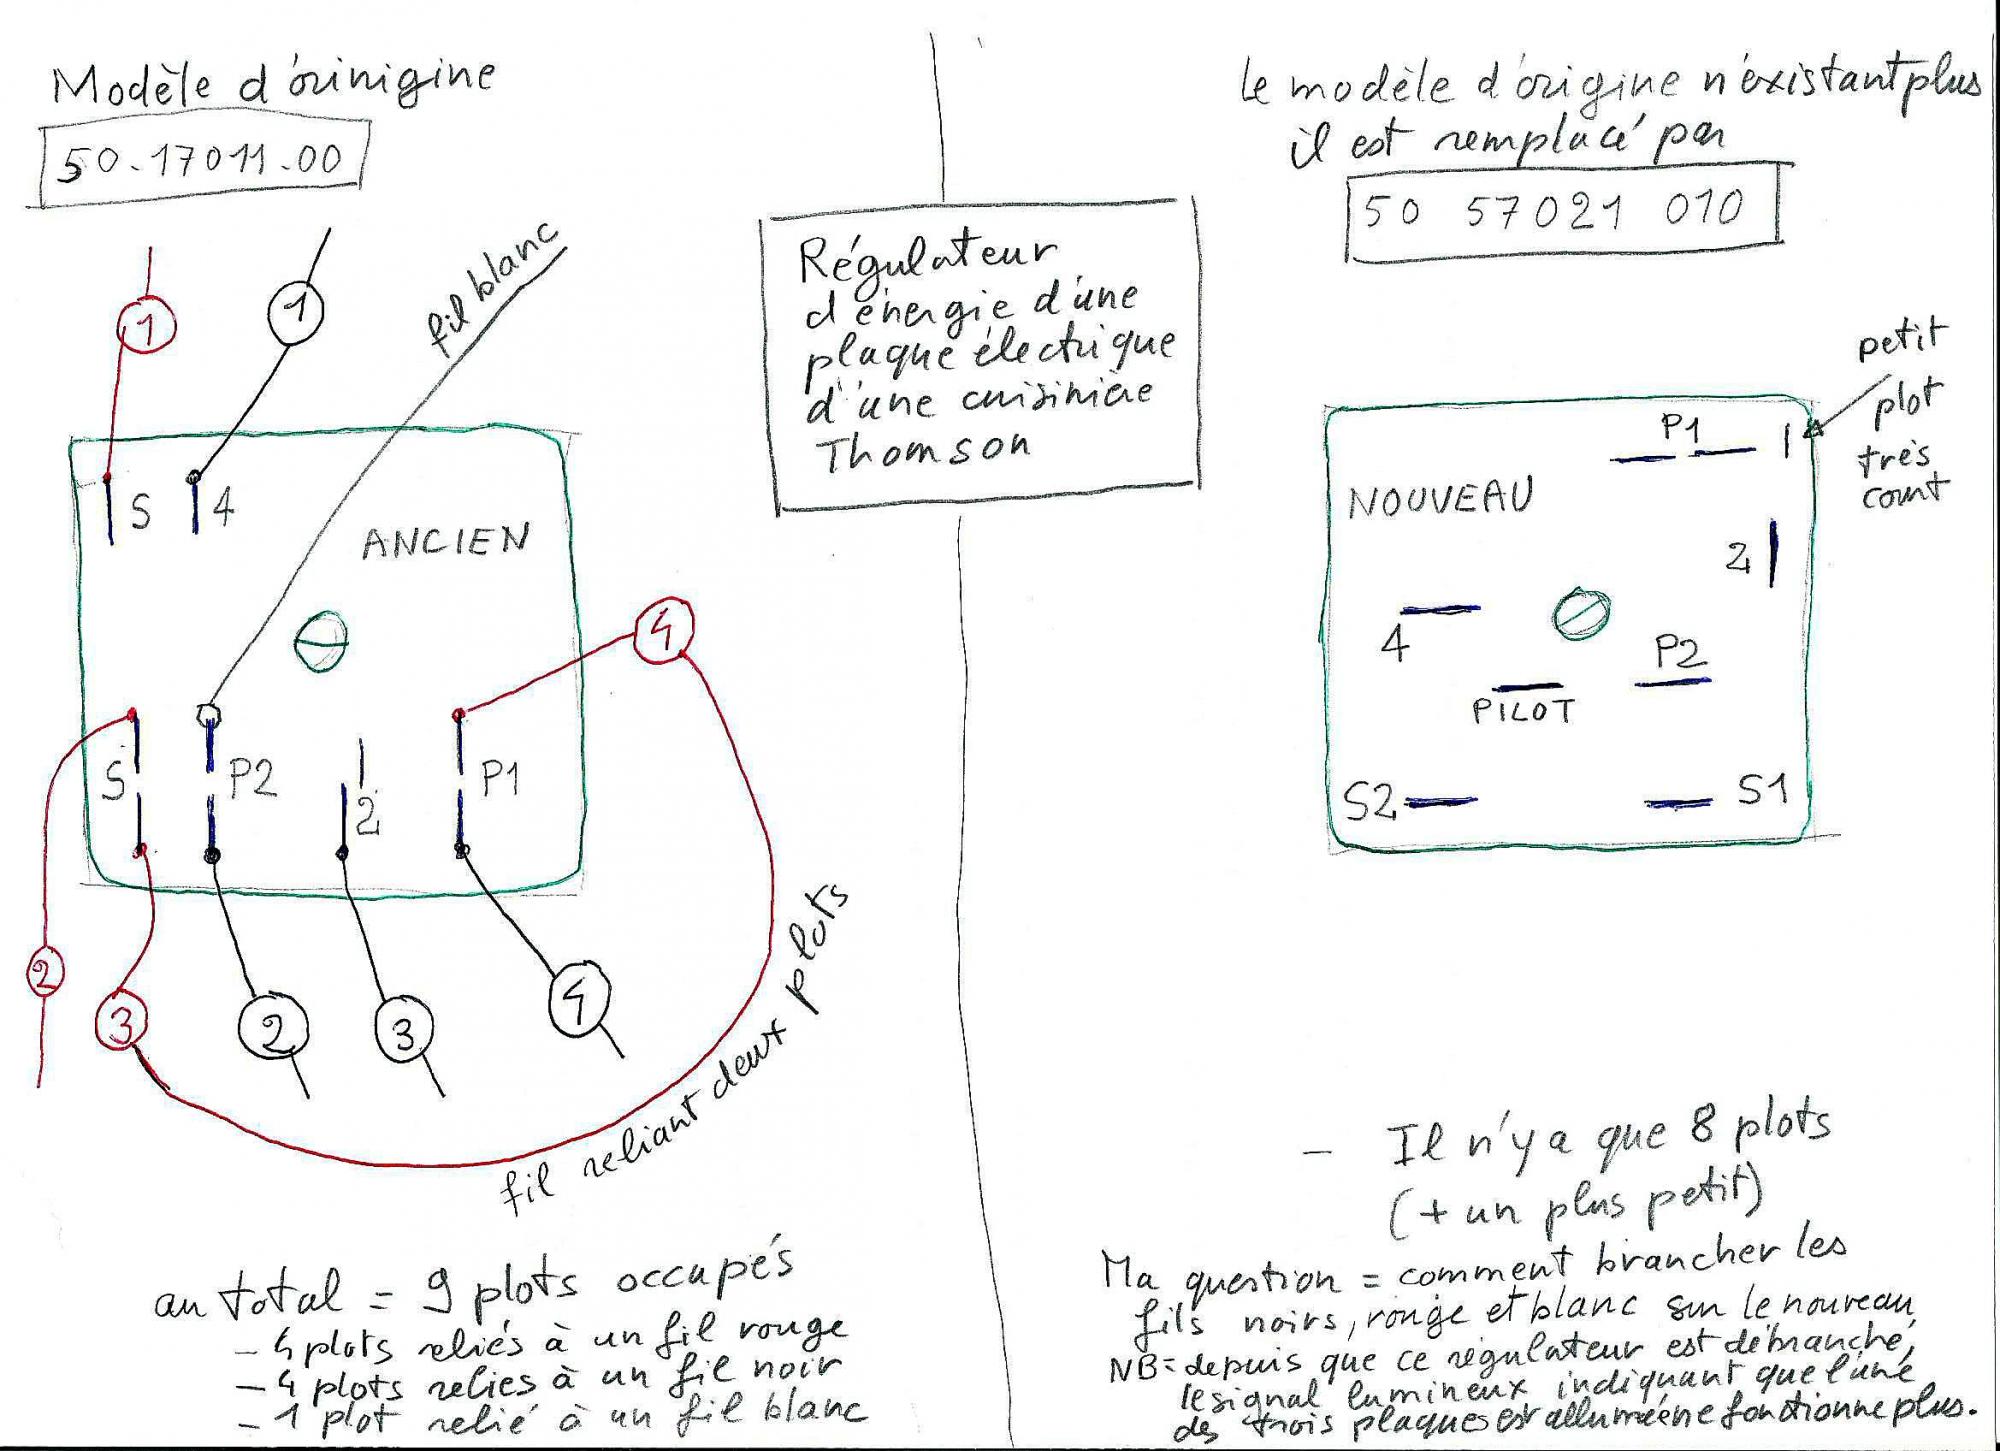 Modèle d'orinigine
50.17011.00
1
1
fil blanc
S
4
ANCIEN
4
S
P2
2
P1
2
3
2
3
4
fil reliant deux plots
au total = 9 plots occupés
- 4 plots reliés à un fil rouge
- 4 plots reliés à un fil noir
- 1 plot relié à un fil blanc
Régulateur
d'énergie d'une
plaque électrique
d'une cuisinière
Thomson
Le modèle d'origine n'éxistant plus
il est remplacé par
50 57021 010
petit
plot
très
court
P1
NOUVEAU
2
4
P2
PILOT
S2
S1
- Il n'y a que 8 plots
(+ un plus petit)
Ma question = comment brancher les
fils noirs, rouge et blanc sur le nouveau,
NB = depuis que ce régulateur est débranché,
le signal lumineux indiquant que l'une
des trois plaques est allumée ne fonctionne plus.